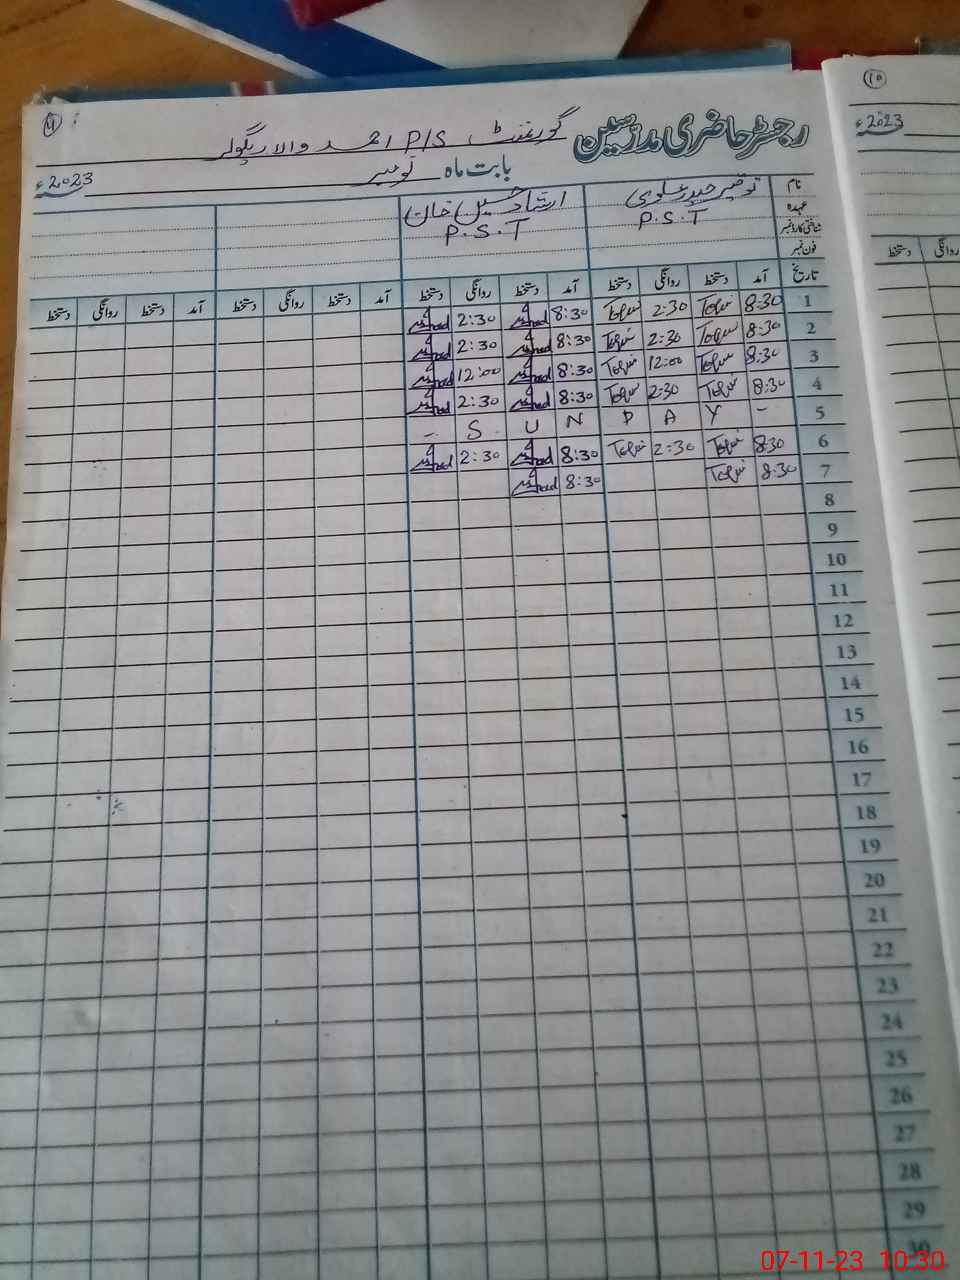 ۱۱
رجسٹر حاضری مدرسین گورنمنٹ P/S احمد والا ریگولر
بابت ماہ نومبر 2023ء
نام توقیر حیدر علوی ارشاد حسین خان
عہدہ P.S.T P.S.T
شناختی کارڈ نمبر
فون نمبر
تاریخ آمد دستخط روانگی دستخط آمد دستخط روانگی دستخط آمد دستخط روانگی دستخط آمد دستخط روانگی دستخط
1 8:30 2:30 8:30 Irshad 2:30 Irshad
2 8:30 2:30 8:30 Irshad 2:30 Irshad
3 8:30 12:00 8:30 Irshad 12:00 Irshad
4 8:30 2:30 8:30 Irshad 2:30 Irshad
5 – S U N D A Y –
6 8:30 2:30 8:30 Irshad 2:30 Irshad
7 8:30 8:30 Irshad
8
9
10
11
12
13
14
15
16
17
18
19
20
21
22
23
24
25
26
27
28
29
30
۱۰
2023ء
روانگی دستخط
07-11-23 10:30